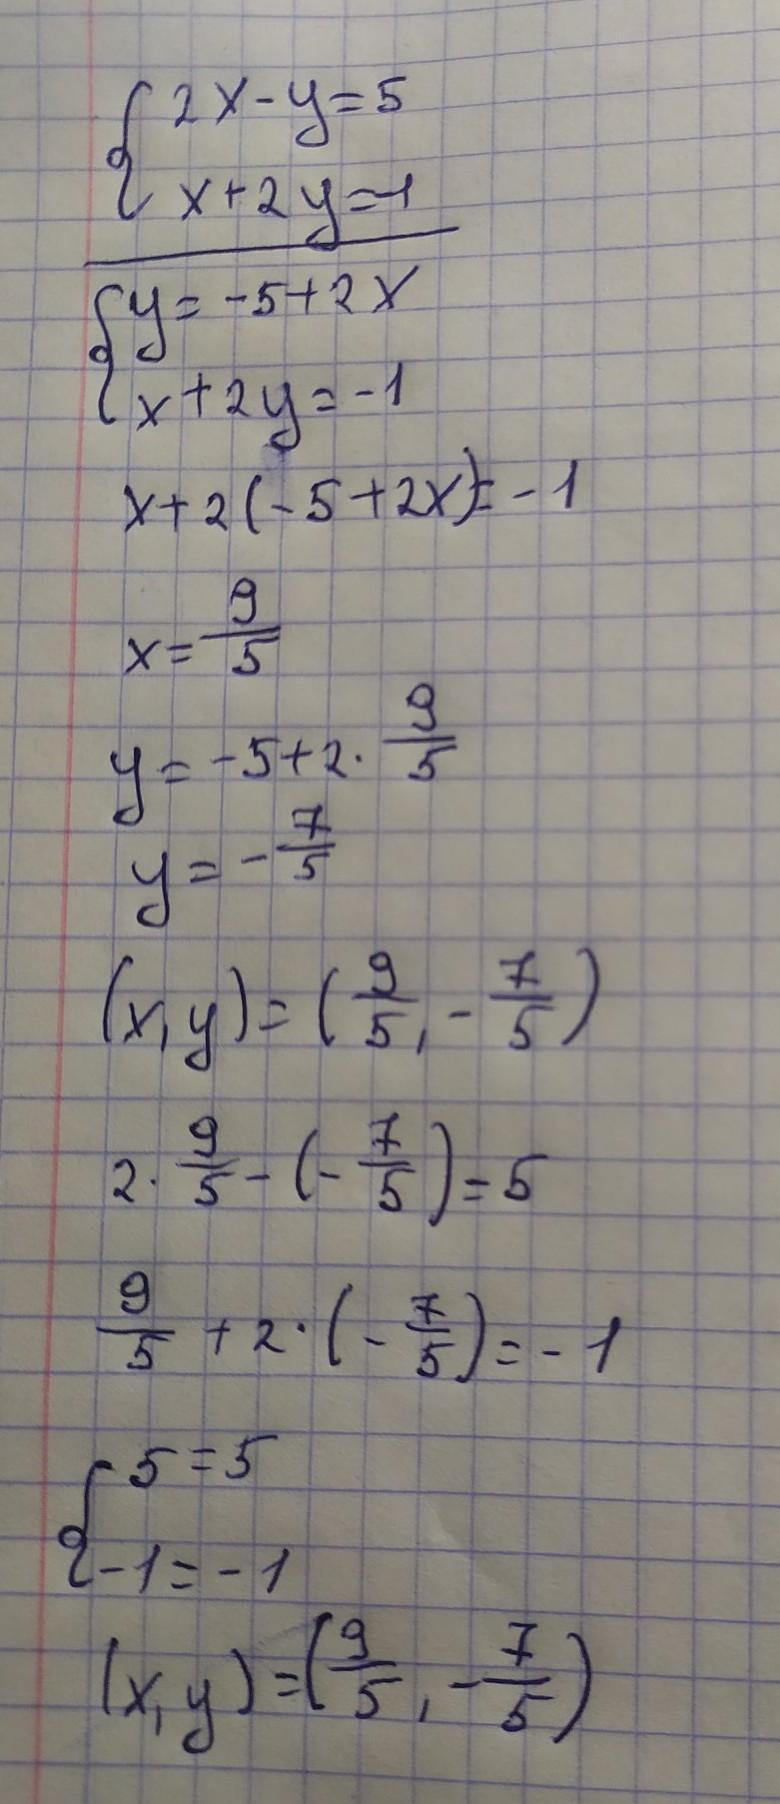 { 2x-y=5
x+2y=-1
{ y=-5+2x
x+2y=-1
x+2(-5+2x)=-1
x=9/5
y=-5+2·9/5
y=-7/5
(x,y)=(9/5,-7/5)
2·9/5-(-7/5)=5
9/5+2·(-7/5)=-1
{ 5=5
-1=-1
(x,y)=(9/5,-7/5)